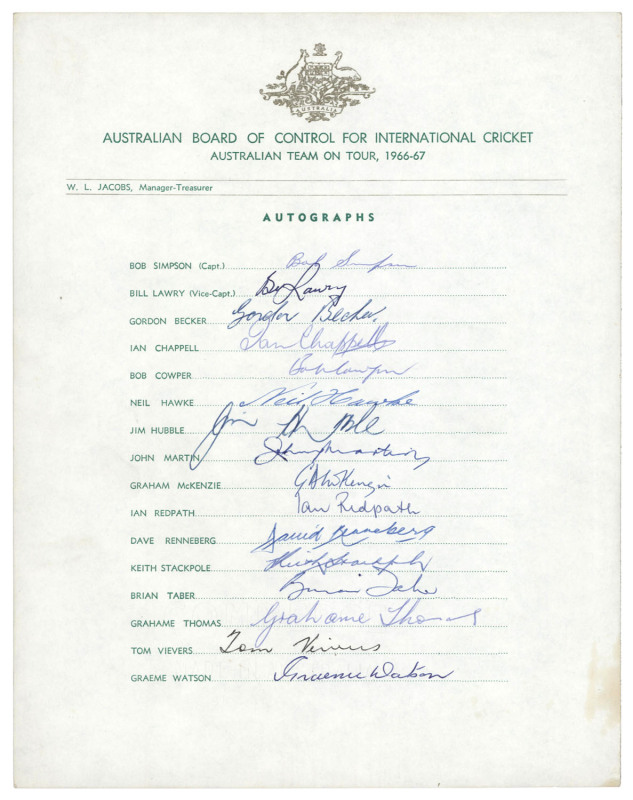 AUSTRALIA
AUSTRALIAN BOARD OF CONTROL FOR INTERNATIONAL CRICKET
AUSTRALIAN TEAM ON TOUR, 1966-67
W. L. JACOBS, Manager-Treasurer
AUTOGRAPHS
BOB SIMPSON (Capt.) Bob Simpson
BILL LAWRY (Vice-Capt.) Bill Lawry
GORDON BECKER Gordon Becker
IAN CHAPPELL Ian Chappell
BOB COWPER Bob Cowper
NEIL HAWKE Neil Hawke
JIM HUBBLE Jim Hubble
JOHN MARTIN John Martin
GRAHAM McKENZIE G McKenzie
IAN REDPATH Ian Redpath
DAVE RENNEBERG David Renneberg
KEITH STACKPOLE Keith Stackpole
BRIAN TABER Brian Taber
GRAHAME THOMAS Grahame Thomas
TOM VIEVERS Tom Veivers
GRAEME WATSON Graeme Watson